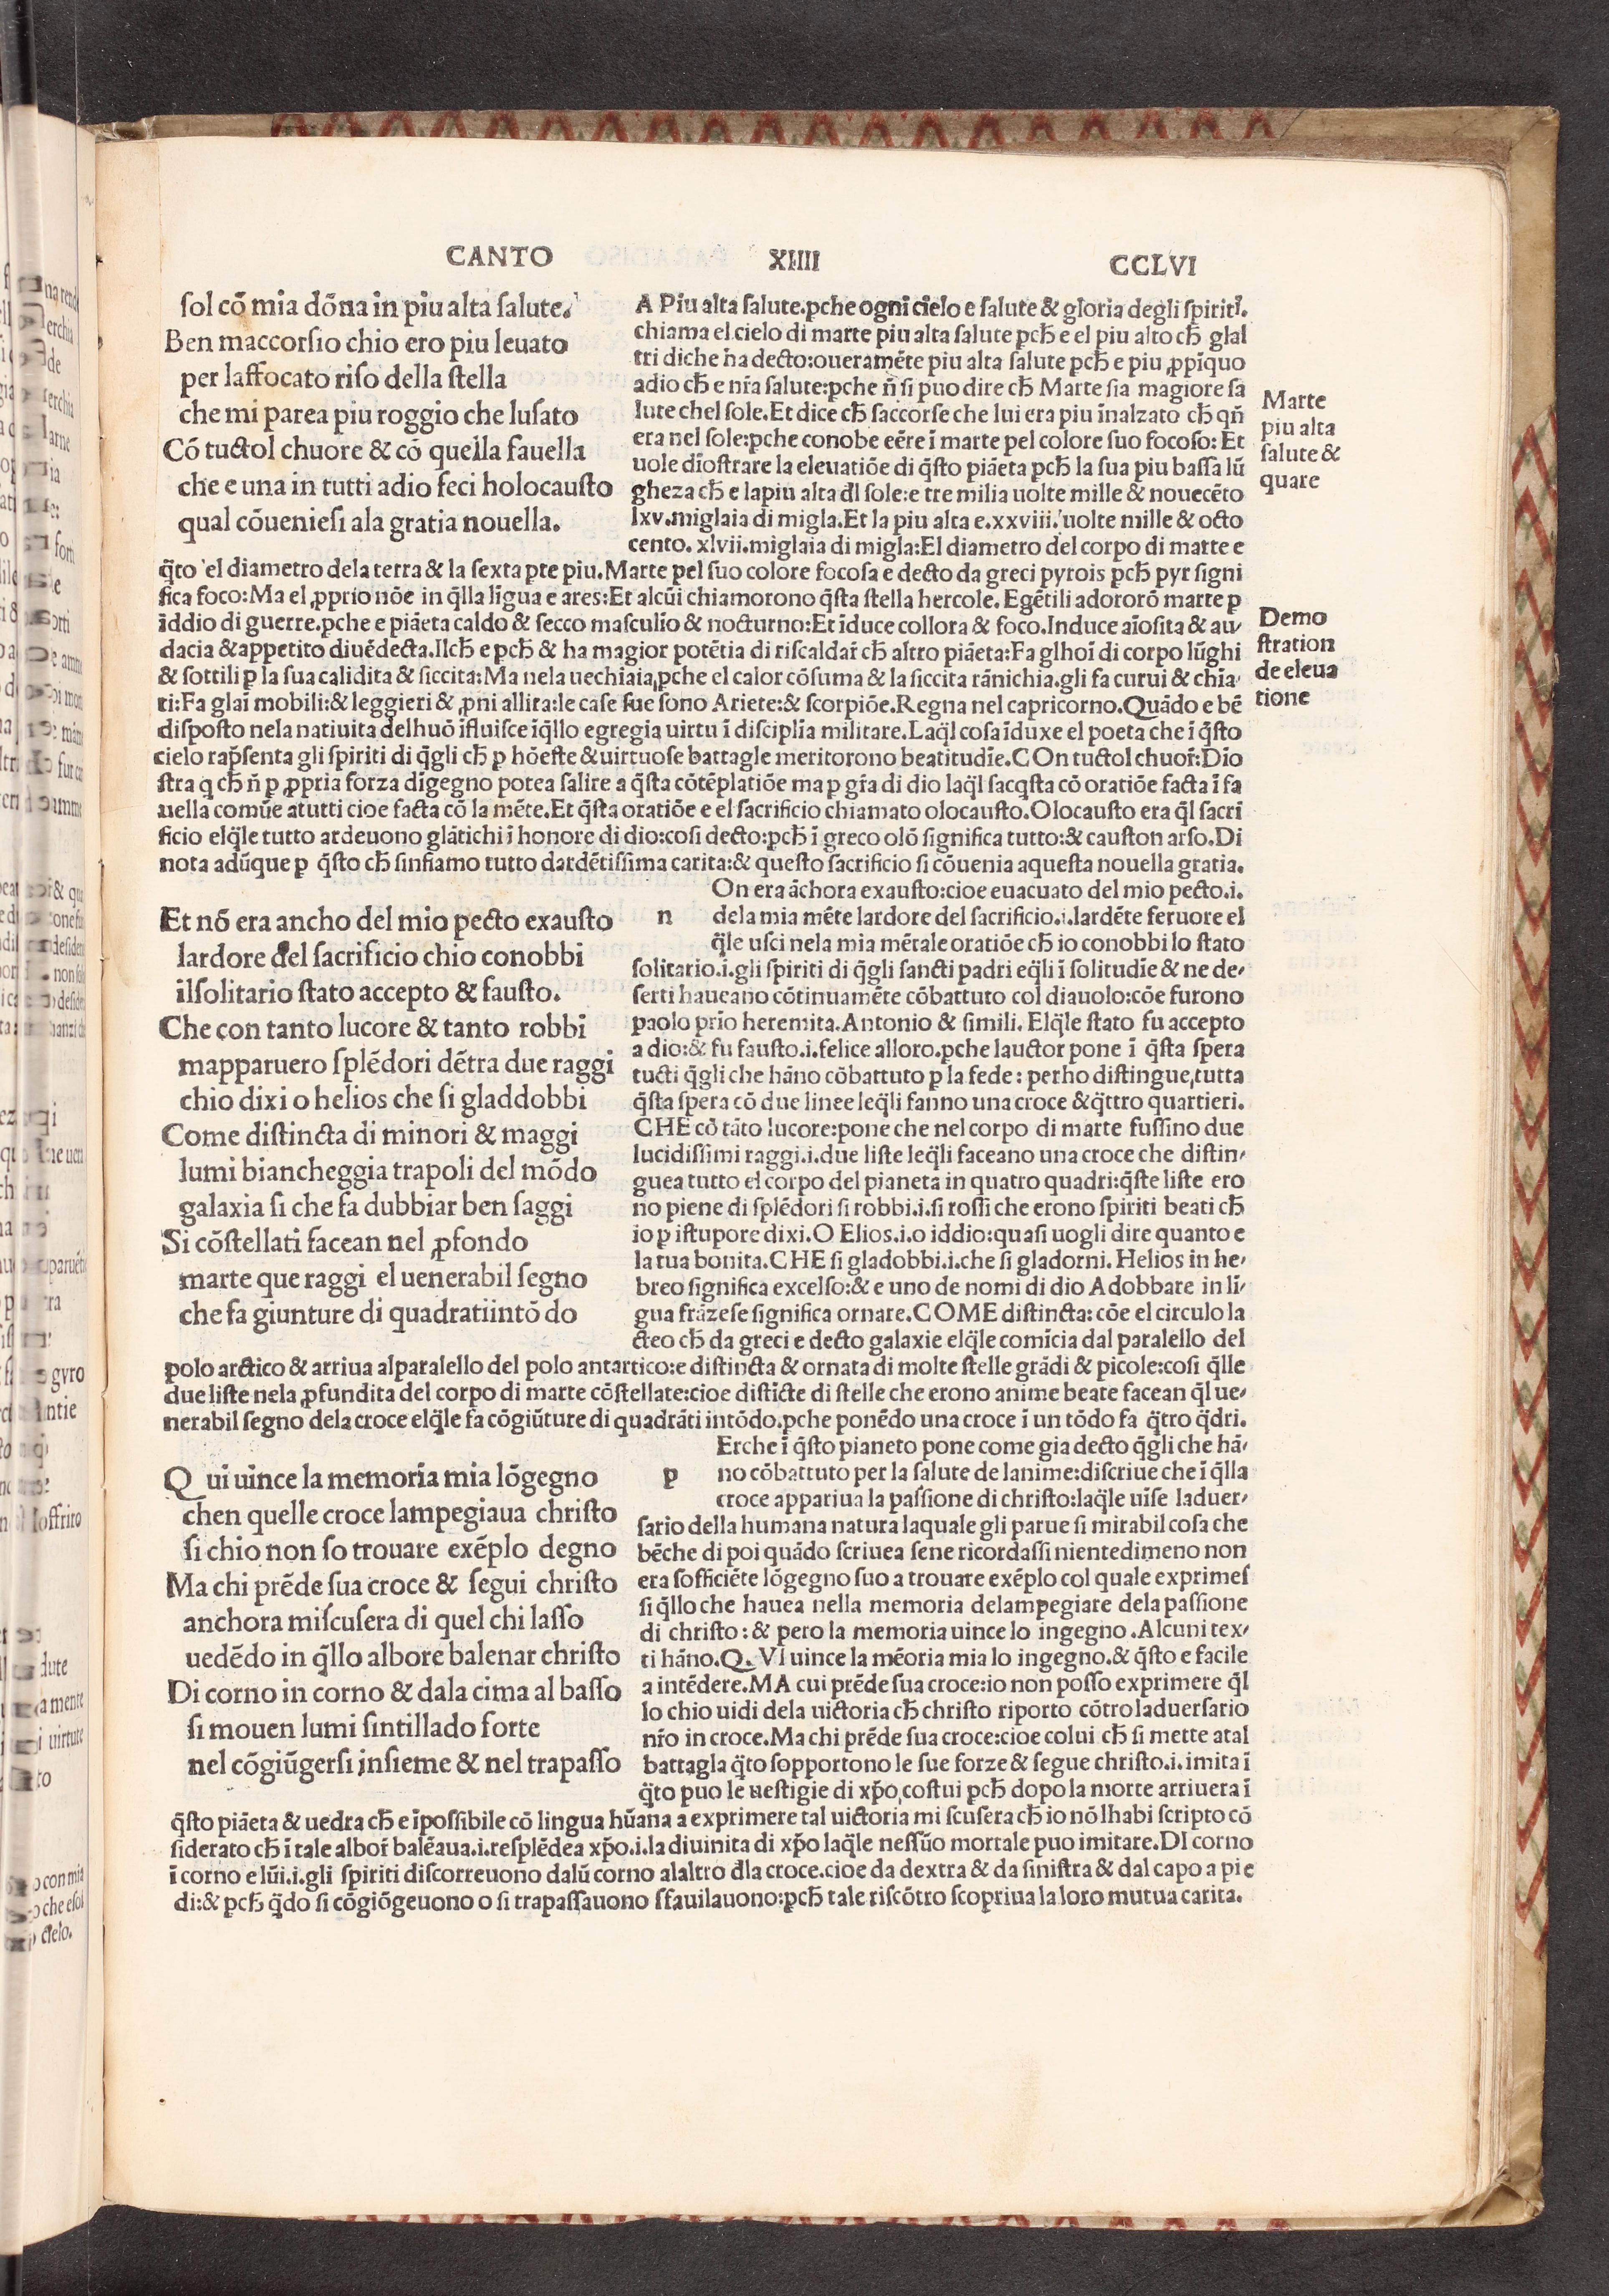 CANTO XIIII CCLVI
ſol cō mia dōna in piu alta ſalute.
Ben maccorſio chio ero piu leuato
per laffocato riſo della ſtella
che mi parea piu roggio che luſato
Cō tuctol chuore & cō quella fauella
che e una in tutti adio feci holocauſto
qual cōuenieſi ala gratia nouella.
A Piu alta ſalute.ꝑche ogni cielo e ſalute & gloria degli ſpiriti.
chiama el cielo di marte piu alta ſalute ꝑcħ e el piu alto cħ glal
tri di che ħa decto:oueramēte piu alta ſalute ꝑcħ e piu ꝓpīquo
adio cħ e nr̄a ſalute:ꝑche n̄ ſi puo dire cħ Marte ſia magiore ſa
lute chel ſole.Et dice cħ ſaccorſe che lui era piu īnalzato cħ qn̄
era nel ſole:ꝑche conobe eēre ī marte pel colore ſuo focoſo: Et
uole dīoſtrare la eleuatiōe di q̄ſto piāeta ꝑcħ la ſua piu baſſa lū
gheza cħ e lapiu alta dl̄ ſole:e tre milia uolte mille & nouecēto
lxv.miglaia di migla.Et la piu alta e.xxviii.uolte mille & octo
cento. xlvii.miglaia di migla:El diametro del corpo di marte e
q̄to el diametro dela terra & la ſexta ꝑte piu.Marte pel ſuo colore focoſa e decto da greci pyrois ꝑcħ pyr ſigni
fica foco:Ma el ꝓprio nōe in q̄lla līgua e ares:Et alcūi chiamorono q̄ſta ſtella hercole. Egētili adororō marte ꝑ
iddio di guerre.ꝑche e piāeta caldo & ſecco maſculīo & nocturno:Et īduce collora & foco.Induce aīoſita & au-
dacia &appetito diuēdecta.Ilcħ e ꝑcħ & ha magior potētia di riſcaldar̄ cħ altro piāeta:Fa glhoī di corpo lūghi
& ſottili ꝑ la ſua calidita & ſiccita:Ma nela uechiaia,ꝑche el calor cōſuma & la ſiccita rānichia.gli fa curui & chīa-
ti:Fa glaī mobili:& leggieri & ꝓni allira:le caſe ſue ſono Ariete:& ſcorpiōe.Regna nel capricorno.Quādo e bē
diſpoſto nela natiuita delhuō īfluiſce īq̄llo egregia uirtu ī diſciplīa militare.Laq̄l coſa īduxe el poeta che ī q̄ſto
cielo rap̄ſenta gli ſpiriti di q̄gli cħ ꝑ hōeſte &uirtuoſe battagle meritorono beatitudīe.COn tuctol chuor̄:Dīo
ſtra q cħ n̄ ꝑ ꝓpria forza dīgegno potea ſalire a q̄ſta cōtēplatiōe ma ꝑ gr̄a di dio laq̄l ſacq̄ſta cō oratiōe facta ī fa
uella comūe atutti cioe facta cō la mēte.Et q̄ſta oratiōe e el ſacrificio chiamato olocauſto.Olocauſto era q̄l ſacri
ficio elq̄le tutto ardeuono glātichi ī honore di dio:coſi decto:ꝑcħ ī greco olō ſignifica tutto:& cauſton arſo.Di
nota adūque ꝑ q̄ſto cħ ſinfiamo tutto dardētiſſima carita:& queſto ſacrificio ſi cōuenia aqueſta nouella gratia.
Marte
piu alta
ſalute &
quare
Demo
ſtration
de eleua
tione
Et nō era ancho del mio pecto exauſto
lardore del ſacrificio chio conobbi
ilſolitario ſtato accepto & fauſto.
Che con tanto lucore & tanto robbi
mapparuero ſplēdori dētra due raggi
chio dixi o helios che ſi gladdobbi
Come diſtincta di minori & maggi
lumi biancheggia trapoli del mōdo
galaxia ſi che fa dubbiar ben ſaggi
Si cōſtellati facean nel ꝓfondo
marte que raggi el uenerabil ſegno
che fa giunture di quadratiintō do
n On era āchora exauſto:cioe euacuato del mio pecto.i.
dela mia mēte lardore del ſacrificio.i.lardēte feruore el
q̄le uſci nela mia mētale oratiōe cħ io conobbi lo ſtato
ſolitario.i.gli ſpiriti di q̄gli ſancti padri eq̄li ī ſolitudīe & ne de-
ſerti haueano cōtinuamēte cōbattuto col diauolo:cōe furono
paolo prīo heremita.Antonio & ſimili. Elq̄le ſtato fu accepto
a dio:& fu fauſto.i.felice alloro.ꝑche lauctor pone ī q̄ſta ſpera
tucti q̄gli che hāno cōbattuto ꝑ la fede: perho diſtingue,tutta
q̄ſta ſpera cō due linee leq̄li fanno una croce &q̄ttro quartieri.
CHE cō tāto lucore:pone che nel corpo di marte fuſſino due
lucidiſſimi raggi.i.due liſte leq̄li faceano una croce che diſtin-
guea tutto el corpo del pianeta in quatro quadri:q̄ſte liſte ero
no piene di ſplēdori ſi robbi.i.ſi roſſi che erono ſpiriti beati cħ
io ꝑ iſtupore dixi.O Elios.i.o iddio:quaſi uogli dire quanto e
la tua bonita.CHE ſi gladobbi.i.che ſi gladorni. Helios in he-
breo ſignifica excelſo:& e uno de nomi di dio Adobbare in lī-
gua frāzeſe ſignifica ornare.COME diſtincta: cōe el circulo la
cteo cħ da greci e decto galaxie elq̄le comīcia dal paralello del
polo arctico & arriua alparalello del polo antartico:e diſtincta & ornata di molte ſtelle grādi & picole:coſi q̄lle
due liſte nela ꝓfundita del corpo di marte cōſtellate:cioe diſtīcte di ſtelle che erono anime beate facean q̄l ue-
nerabil ſegno dela croce elq̄le fa cōgiūture di quadrāti intōdo.ꝑche ponēdo una croce ī un tōdo fa q̄tro q̄dri.
Q ui uince la memoria mia lōgegno
chen quelle croce lampegiaua chriſto
ſi chio non ſo trouare exēplo degno
Ma chi prēde ſua croce & ſegui chriſto
anchora miſcuſera di quel chi laſſo
uedēdo in q̄llo albore balenar chriſto
Di corno in corno & dala cima al baſſo
ſi mouen lumi ſintillado forte
nel cōgiūgerſi inſieme & nel trapaſſo
p Erche ī q̄ſto pianeto pone come gia decto q̄gli che hā-
no cōbattuto per la ſalute de lanime:diſcriue che ī q̄lla
croce appariua la paſſione di chriſto:laq̄le uiſe laduer-
ſario della humana natura laquale gli parue ſi mirabil coſa che
bēche di poi quādo ſcriuea ſene ricordaſſi nientedimeno non
era ſofficiēte lōgegno ſuo a trouare exēplo col quale exprimeſ
ſi q̄llo che hauea nella memoria delampegiare dela paſſione
di chriſto:& pero la memoria uince lo ingegno.Alcuni tex-
ti hāno.Q. VI uince la mēoria mia lo ingegno.& q̄ſto e facile
a intēdere.MA cui prēde ſua croce:io non poſſo exprimere q̄l
lo chio uidi dela uictoria cħ chriſto riporto cōtro laduerſario
nr̄o in croce.Ma chi prēde ſua croce:cioe colui cħ ſi mette atal
battagla q̄to ſopportono le ſue forze & ſegue chriſto.i. imita ī
q̄to puo le ueſtigie di xp̄o,coſtui ꝑcħ dopo la morte arriuera ī
q̄ſto piāeta & uedra cħ e īpoſſibile cō lingua hūana a exprimere tal uictoria mi ſcuſera cħ io nō lhabi ſcripto cō
ſiderato cħ ī tale albor̄ balēaua.i.reſplēdea xp̄o.i.la diuinita di xp̄o laq̄le neſſūo mortale puo imitare.DI corno
ī corno e lūi.i.gli ſpiriti diſcorreuono dalū corno alaltro dla croce.cioe da dextra & da ſiniſtra & dal capo a pie
di:& ꝑcħ q̄do ſi cōgiōgeuono o ſi trapaſſauono ſfauilauono:ꝑcħ tale riſcōtro ſcopriua la loro mutua carita.